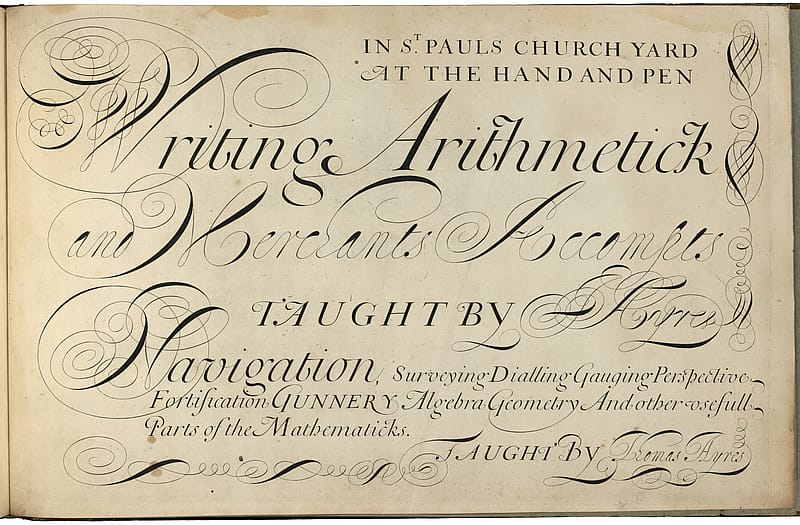 IN S.T PAULS CHURCH YARD
AT THE HAND AND PEN
Writing Arithmetick
and Merchants Accompts
TAUGHT BY Ayres
Navigation, Surveying Dialling Gauging Perspective
Fortification GUNNERY Algebra Geometry And other vsefull
Parts of the Mathematicks.
TAUGHT By Thomas Ayres